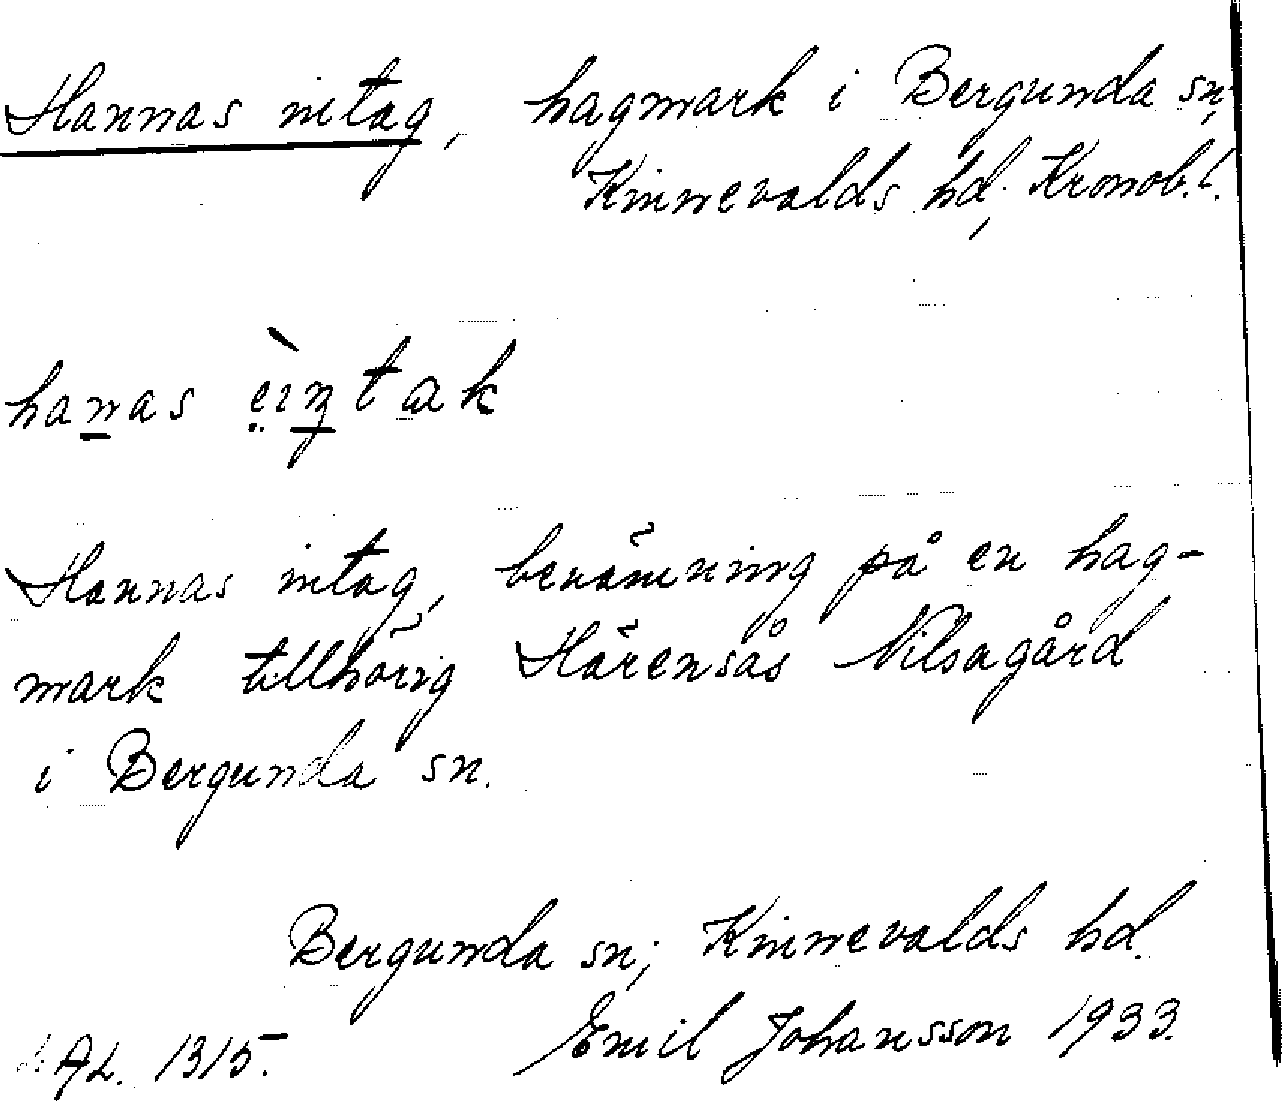 Hannas intag, hagmark i Bergunda sn,
Kinnevalds hd, Kronob. l.
hanas
Hannas intag, benämning på en hag-
mark tillhörig Härensås Nilsagård
i Bergunda sn.
Bergunda sn; Kinnevalds hd.
AL. 1315. Emil Johansson 1933.